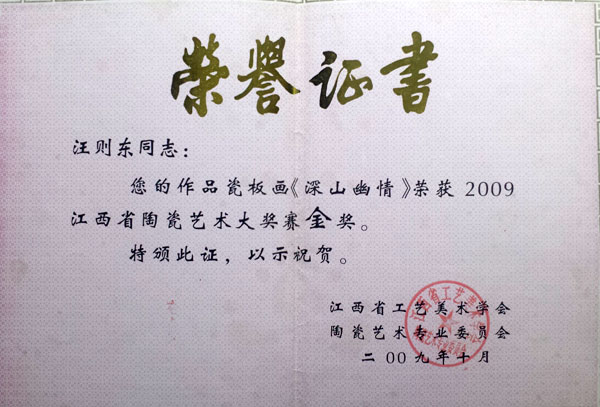 荣誉证书
汪则东同志：
您的作品瓷板画《深山幽情》荣获2009
江西省陶瓷艺术大奖赛金奖。
特颁此证，以示祝贺。
江西省工艺美术学会
陶瓷艺术专业委员会
二00九年十月